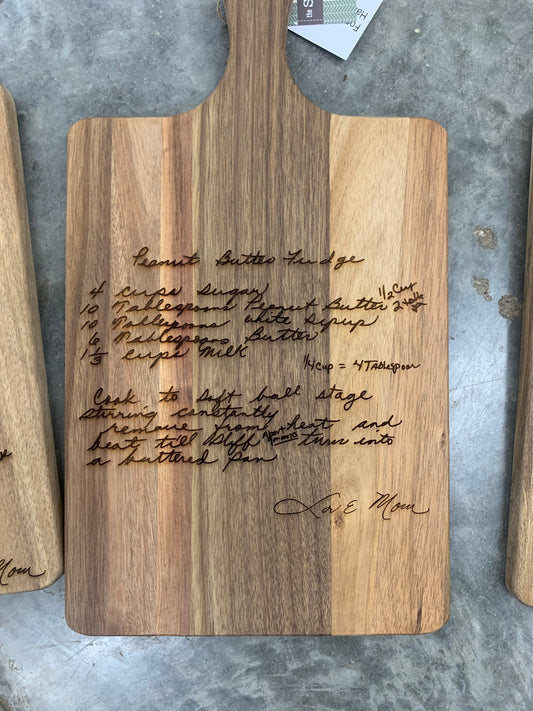 Peanut Butter Fudge
4 cups sugar
10 Tablespoons Peanut Butter 1/2 Cup 2 table
10 Tablespoons white syrup
6 Tablespoons Butter
1 1/3 cups Milk
1/4 cup = 4 Tablespoon
Cook to soft ball stage
stirring constantly
remove from heat and
beat till stiff turn into
a buttered pan
Love Mom
Mom